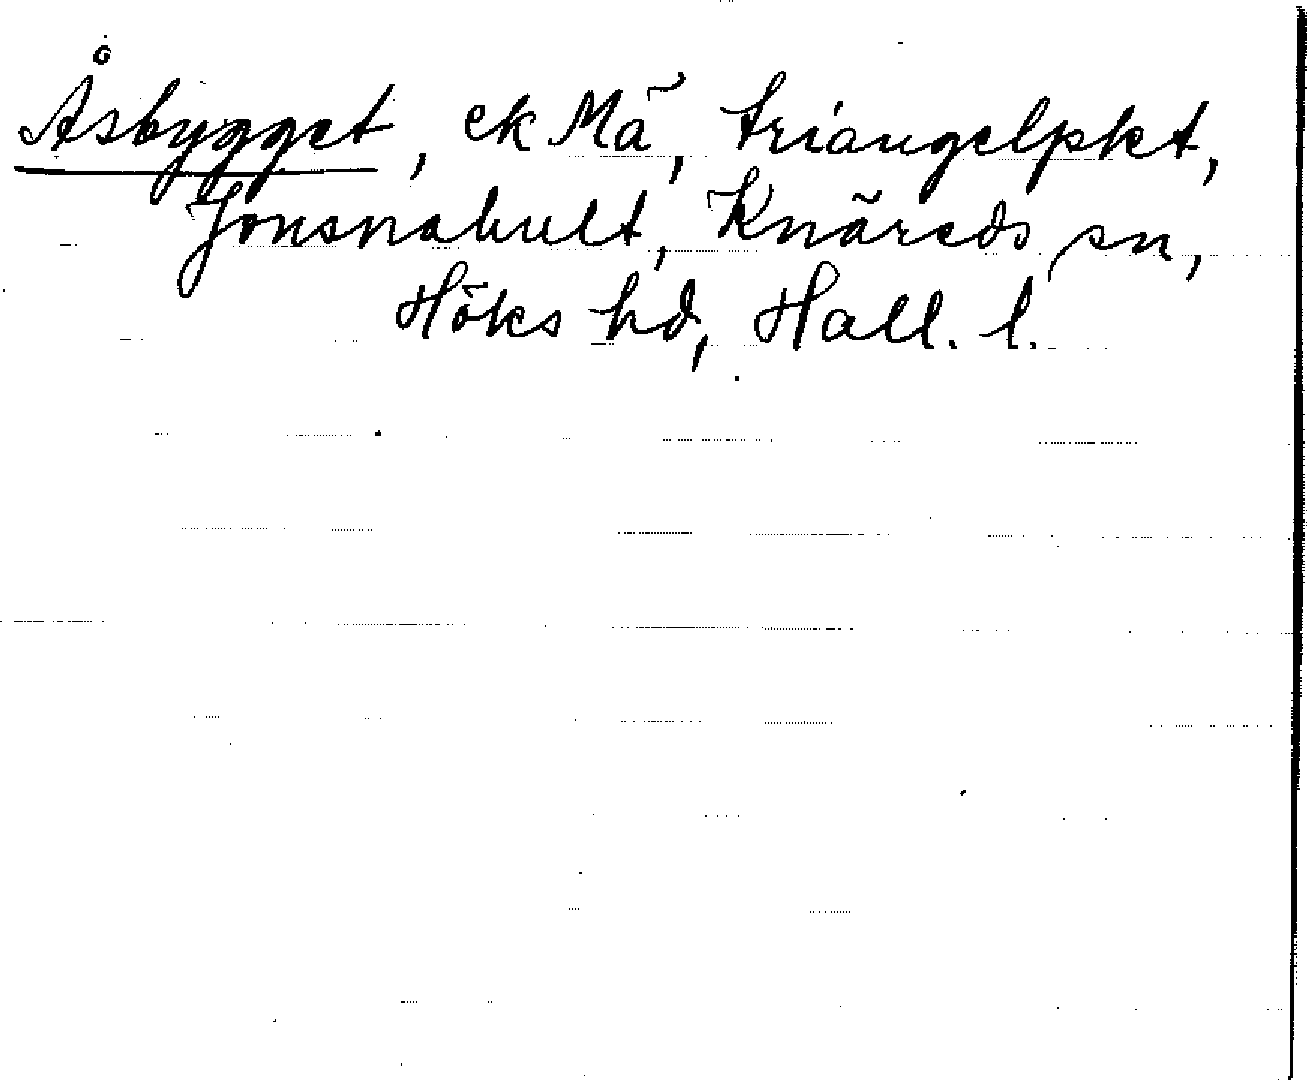 Åsbygget, ek Mä, triangelpkt,
Jonsnahult, Knäreds sn,
Höks hd, Hall. l.